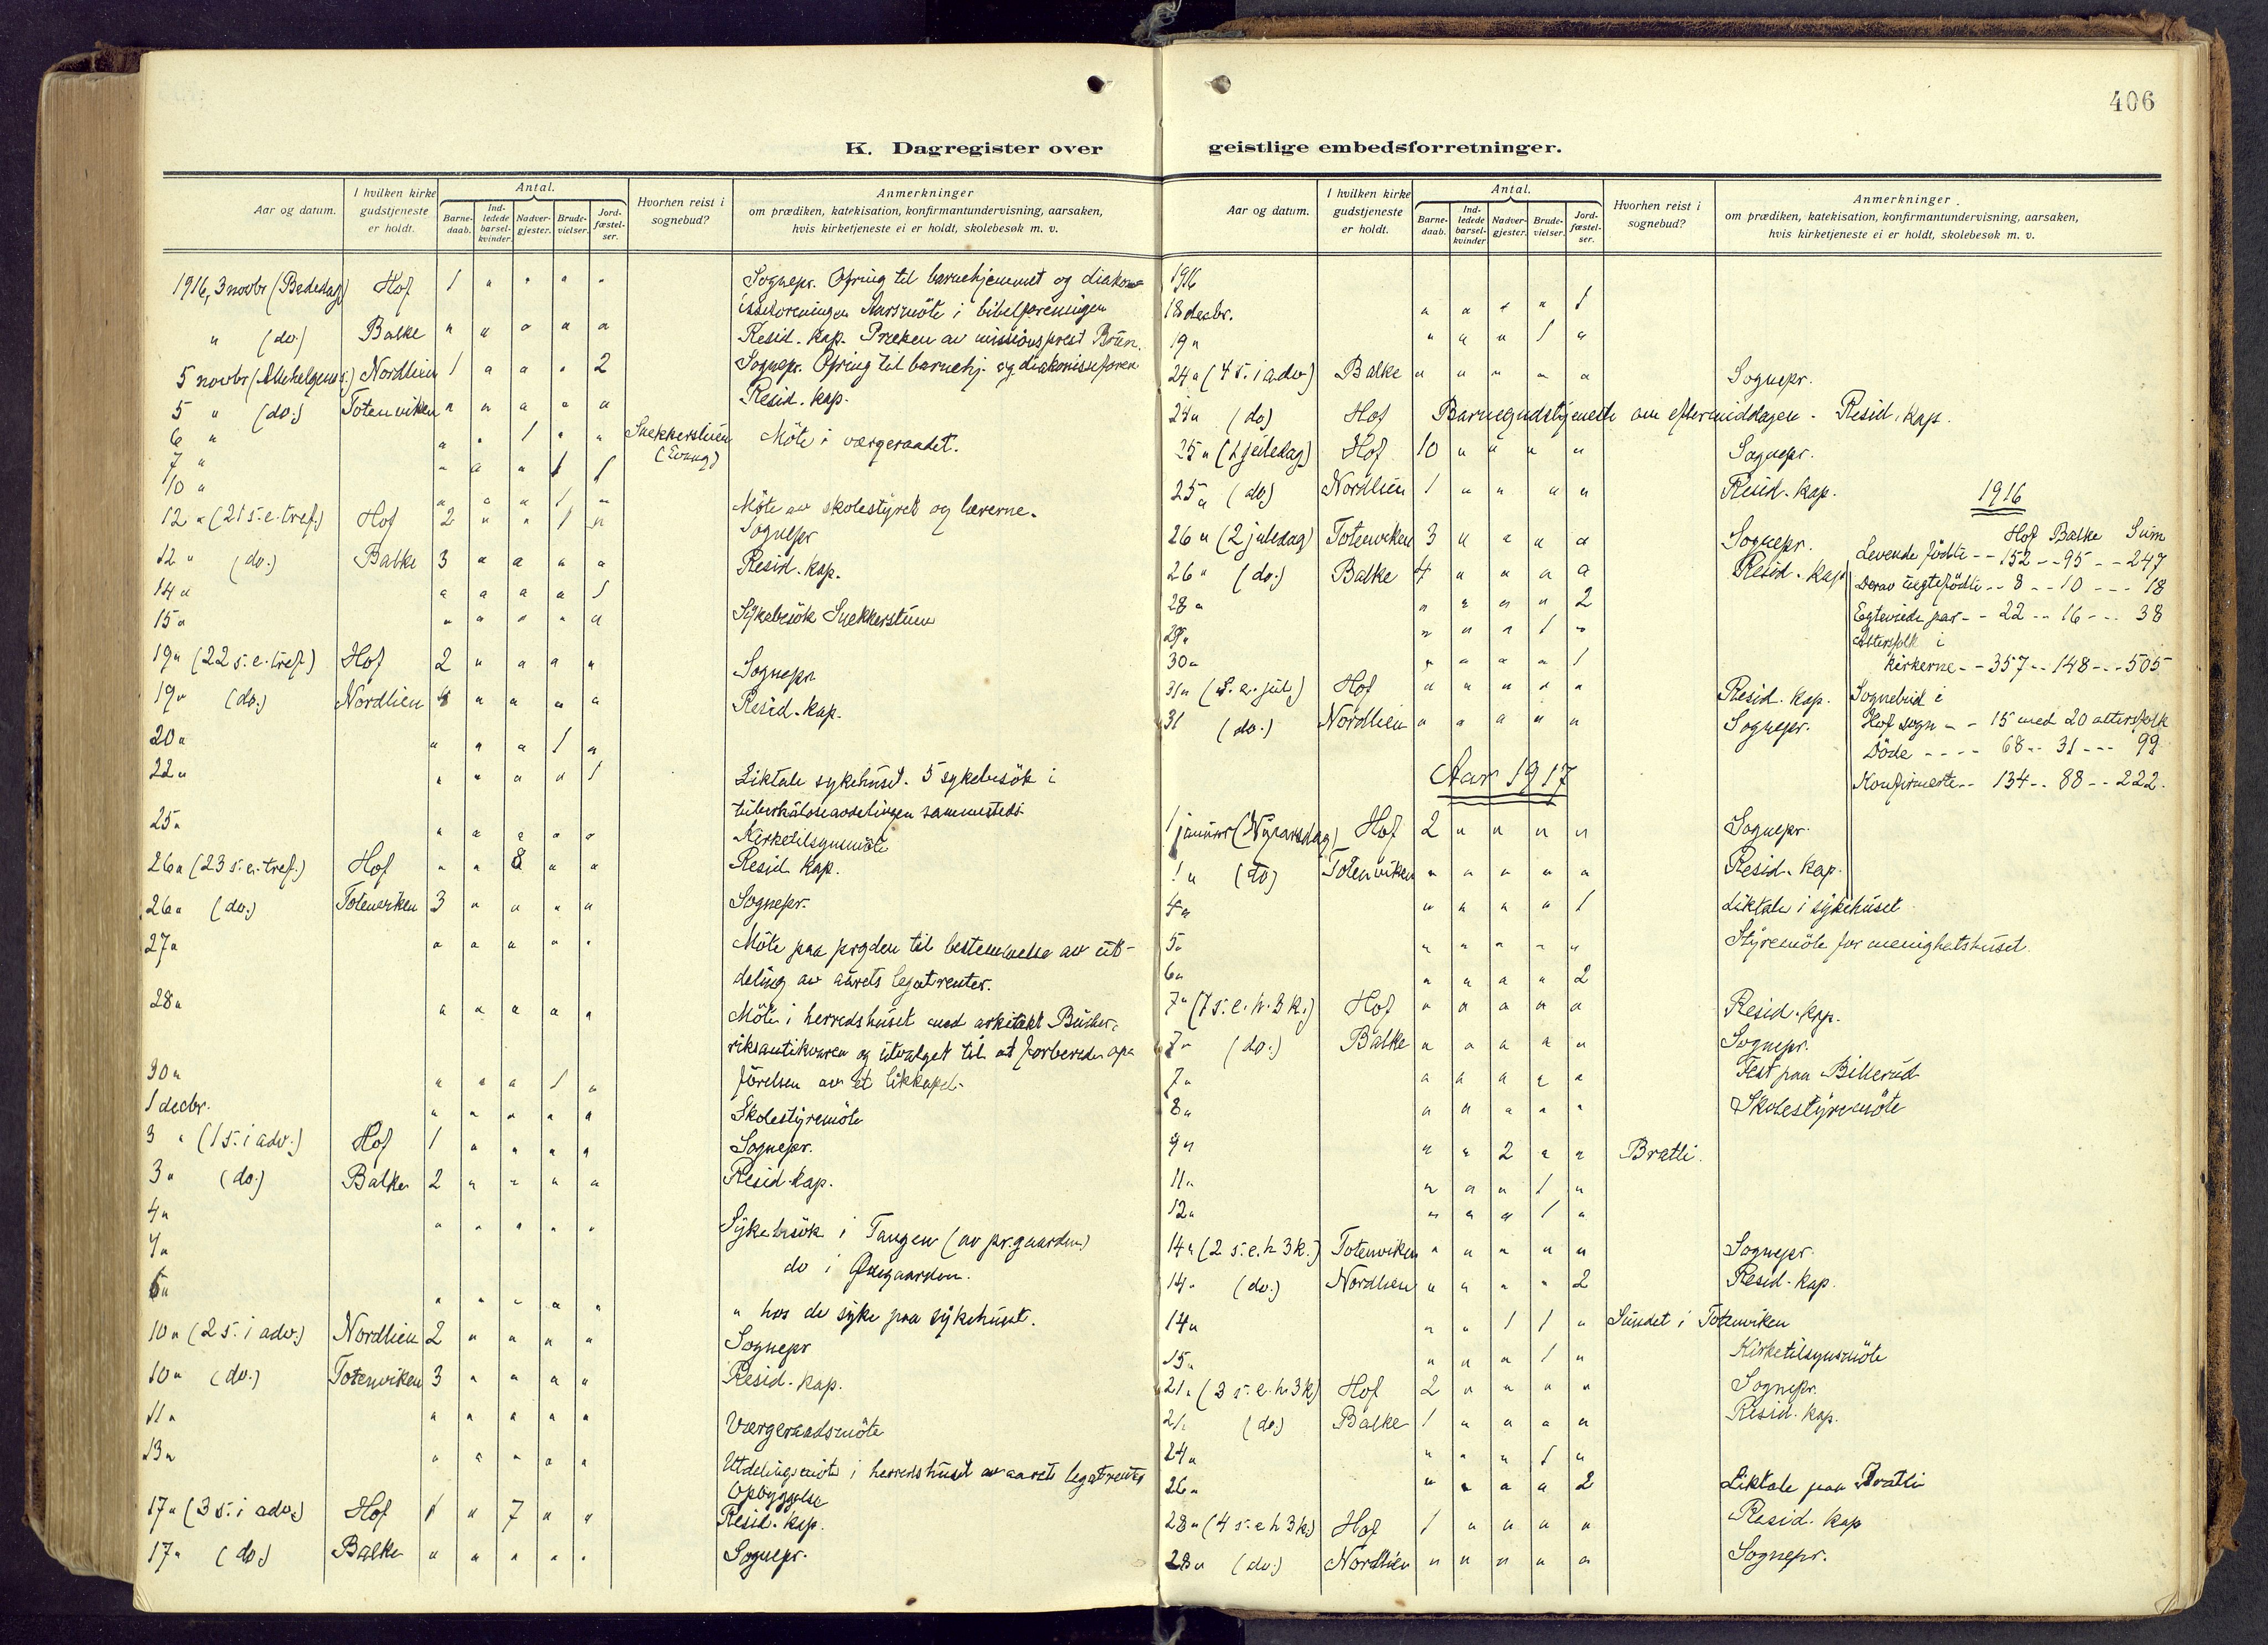 406
K. Dagregister over geistlige embedsforretninger.
Aar og datum.
I hvilken kirke gudstjeneste er holdt.
Antal.
Barne-daab.
Ind-ledede barsel-kvinder.
Nadver-gjester.
Brude-vielser.
Jord-fæstel-ser.
Hvorhen reist i sognebud?
Anmerkninger
om prædiken, katekisation, konfirmantundervisning, aarsaken,
hvis kirketjeneste ei er holdt, skolebesøk m. v.
1916, 3 novbr (Bededag) Hof 1 " " " " Sognepr. Ofring til barnehjemmet og diakon-
isseforeningen Aarsmöte i bibelforeningen
" (do.) Balke " " " " " Resid. kap. Preken av missionsprest Brun.
5 novbr (Allehelgens.) Nordlien 1 " " " 2 Sognepr. Ofring til barnehj. og diakonisseforen
5 " (do.) Totenviken " " " " " Resid. kap.
6 " " " 1 " " Snekkerstuen (Evang) Möte i værgeraadet.
7 " " " " 1 1
10 " " " " 1 " Möte av skolestyret og lærerne.
12 " (21 s. e. tref.) Hof 2 " " 1 " Sognepr
12 " (do.) Balke 3 " " " " Resid. kap.
14 " " " " " 1
15 " " " " " " Sykebesök Snekkerstuen
19 " (22 s. e. tref.) Hof 2 " " " " Sognepr
19 " (do.) Nordlien 4 " " " " Resid. kap.
20 " " " " 1 "
22 " " " " " 1 Liktale sykehuset. 5 sykebesök i
tuberkuloseavdelingen sammesteds.
25 " " " " " " Kirketilsynsmöte
26 " (23 s. e. tref.) Hof " " 8 " " Resid. kap.
26 " (do.) Totenviken 3 " " " " Sognepr.
27 " " " " " " Möte paa prgden til bestemmelse av ut-
deling av aarets legatrenter.
28 " " " " " " Möte i herredshuset med arkitekt
riksantikvaren og utvalget til at forberede op-
förelsen av et likkapel.
30 " " " " 1 "
1 decbr. " " " " " Skolestyremöte
3 " (1 s. i adv.) Hof 1 " " " " Sognepr.
3 " (do.) Balke 2 " " " " Resid. kap.
4 " " " " " " Sykebesök i Tangen (av pr.gaarden)
4 " do i Ødegaarden.
6 " " " " " " " hos de syke paa sykehuset.
10 " (2 s. i adv.) Nordlien 2 " " " " Sognepr
10 " (do.) Totenviken 3 " " " " Resid. kap.
11 " " " " " " Værgeraadsmöte
13 " " " " " " Utdelingsmöte i herredshuset av aarets legatrenter
Opbyggelse
17 " (3 s. i adv.) Hof 1 " 7 " " Resid. kap.
17 " (do.) Balke " " " " " Sognepr.
Aar og datum.
I hvilken kirke gudstjeneste er holdt.
Antal.
Barne-daab.
Ind-ledede barsel-kvinder
Nadver-gjester.
Brude-vielser.
Jord-fæstel-ser.
Hvorhen reist i sognebud?
Anmerkninger.
om prædiken, katekisation, konfirmantundervisning, aarsaken,
hvis kirketjeneste ei er holdt, skolebesøk m. v.
1916
18 decbr. " " " " 1
19 " " " " 1 "
24 " (4 s. i adv) Balke " " " " " Sognepr.
24 " (do) Hof Barnegudstjeneste om eftermiddagen. Resid. kap.
25 " (1 juledag) Hof 10 " " " " Sognepr.
25 " (do) Nordlien 1 " " " " Resid. kap.
26 " (2 juledag) Totenviken 3 " " " " Sognepr.
26 " (do.) Balke 4 " " " " Resid. kap
28 " " " " " 2
29 " " " " 1 "
30 " " " " " 1
31 " (S. e. jul) Hof " " " " " Resid. kap.
31 (do.) Nordlien " " " " " Sognepr.
1916
Hof Balke Sum
Levende födte -- 152 -- 95 -- 247
Derav uegtefödte -- 8 -- 10 --- 18
Egteviede par -- 22 -- 16 --- 38
Altersfolk i
kirkerne -- 357 -- 148 --- 505
Sognebud i
Hof sogn -- 15 med 20 altersfolk
Döde ---- 68 -- 31 --- 99
Konfirmerte -- 134 -- 88 -- 222.
Aar 1917
1 januar (Nyaarsdag) Hof 2 " " " " Sognepr.
1 " (do) Totenviken " " " " " Resid. kap.
4 " " " " " 1 Liktale i sykehuset
5 " " " " " " Styremöte for menighetshuset.
6 " " " " " 2
7 " (1 s. e. h. 3 k.) Hof " " " " " Resid. kap.
7 " (do.) Balke " " " " " Sognepr.
7 " " " " " " Fest paa Billerud
8 " " " " " " Skolestyremöte
9 " " " 2 " " Bratli.
11 " " " " 1 "
12 " " " " 1 "
14 " (2 s. e. h 3 k.) Totenviken " " " " " Sognepr.
14 " (do.) Nordlien " " " " 2 Resid. kap.
14 " " " 1 1 " Sundet i Totenviken
15 " " " " 1 " Kirketilsynsmöte
21 " (3 s. e. h. 3 k) Hof 2 " " " " Sognepr.
21 " (do.) Balke 1 " " " " Resid. kap.
24 " " " " 1 "
26 " " " " " 2 Liktale paa Bratli
28 " (4 s. e h 3 k) Hof 1 " " " " Resid. kap
28 " (do.) Nordlien " " " " " Sognepr.